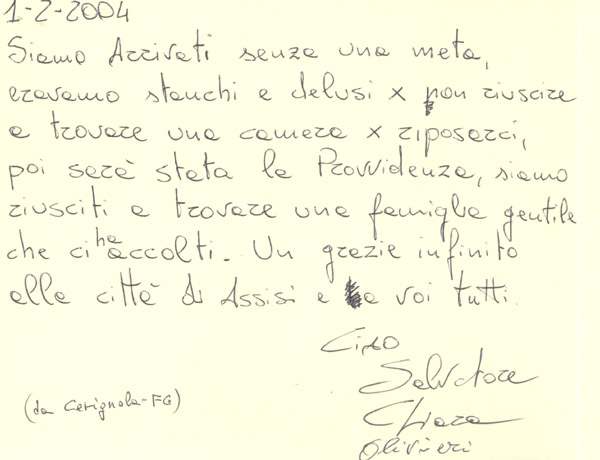 1-2-2004
Siamo Arrivati senza una meta,
eravamo stanchi e delusi x non riuscire
a trovare una camera x riposarci,
poi sarà stata la Provvidenza, siamo
riusciti a trovare una famiglia gentile
che ci ha accolti. Un grazie infinito
alla città di Assisi e a voi tutti.
Ciao
Salvatore
Chiara
Olivieri
(da Cerignola-FG)